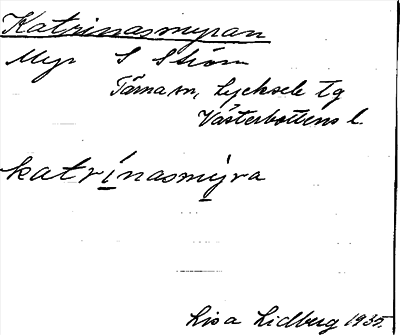 Katrinasmyran
Myr S Ström
Tärna sn, Lycksele tg
Västerbottens l.
katrínasmýra
Lisa Lidberg 1935.